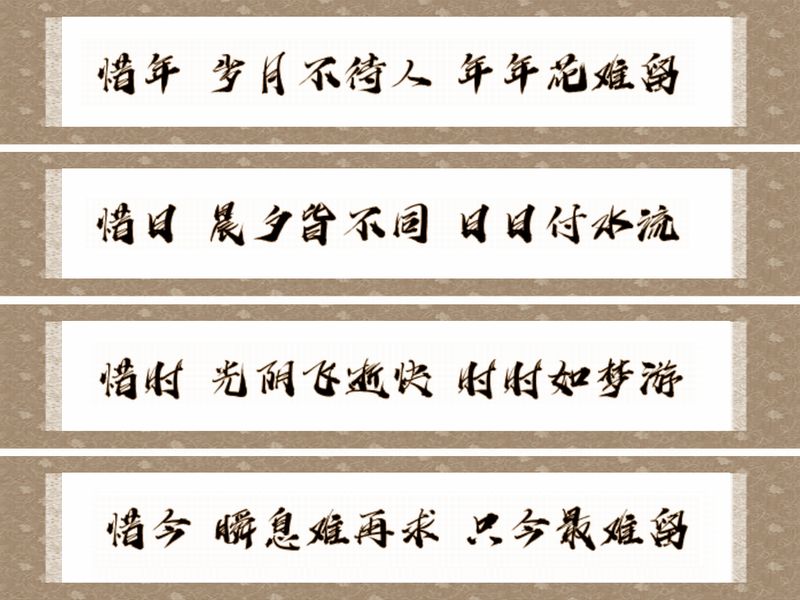 惜年 岁月不待人 年年花难留
惜日 晨夕皆不同 日日付水流
惜时 光阴飞逝快 时时如梦游
惜今 瞬息难再求 只今最难留